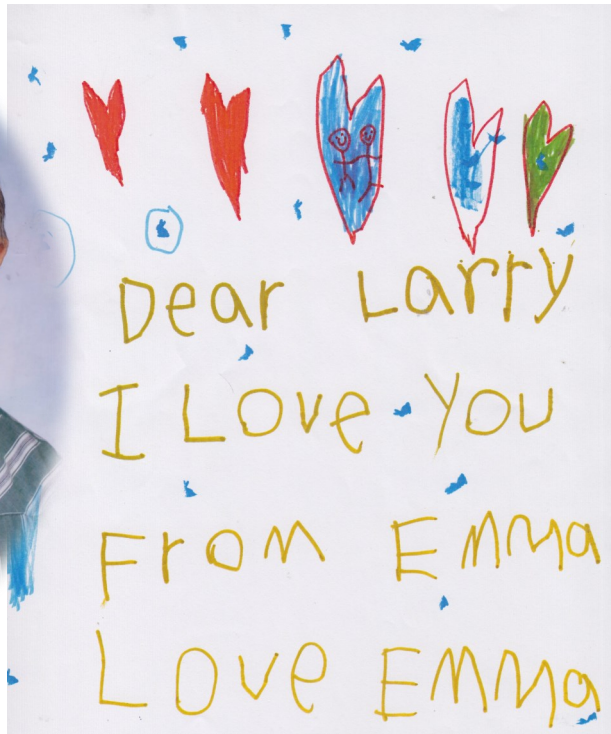 Dear Larry
I Love You
From Emma
Love Emma